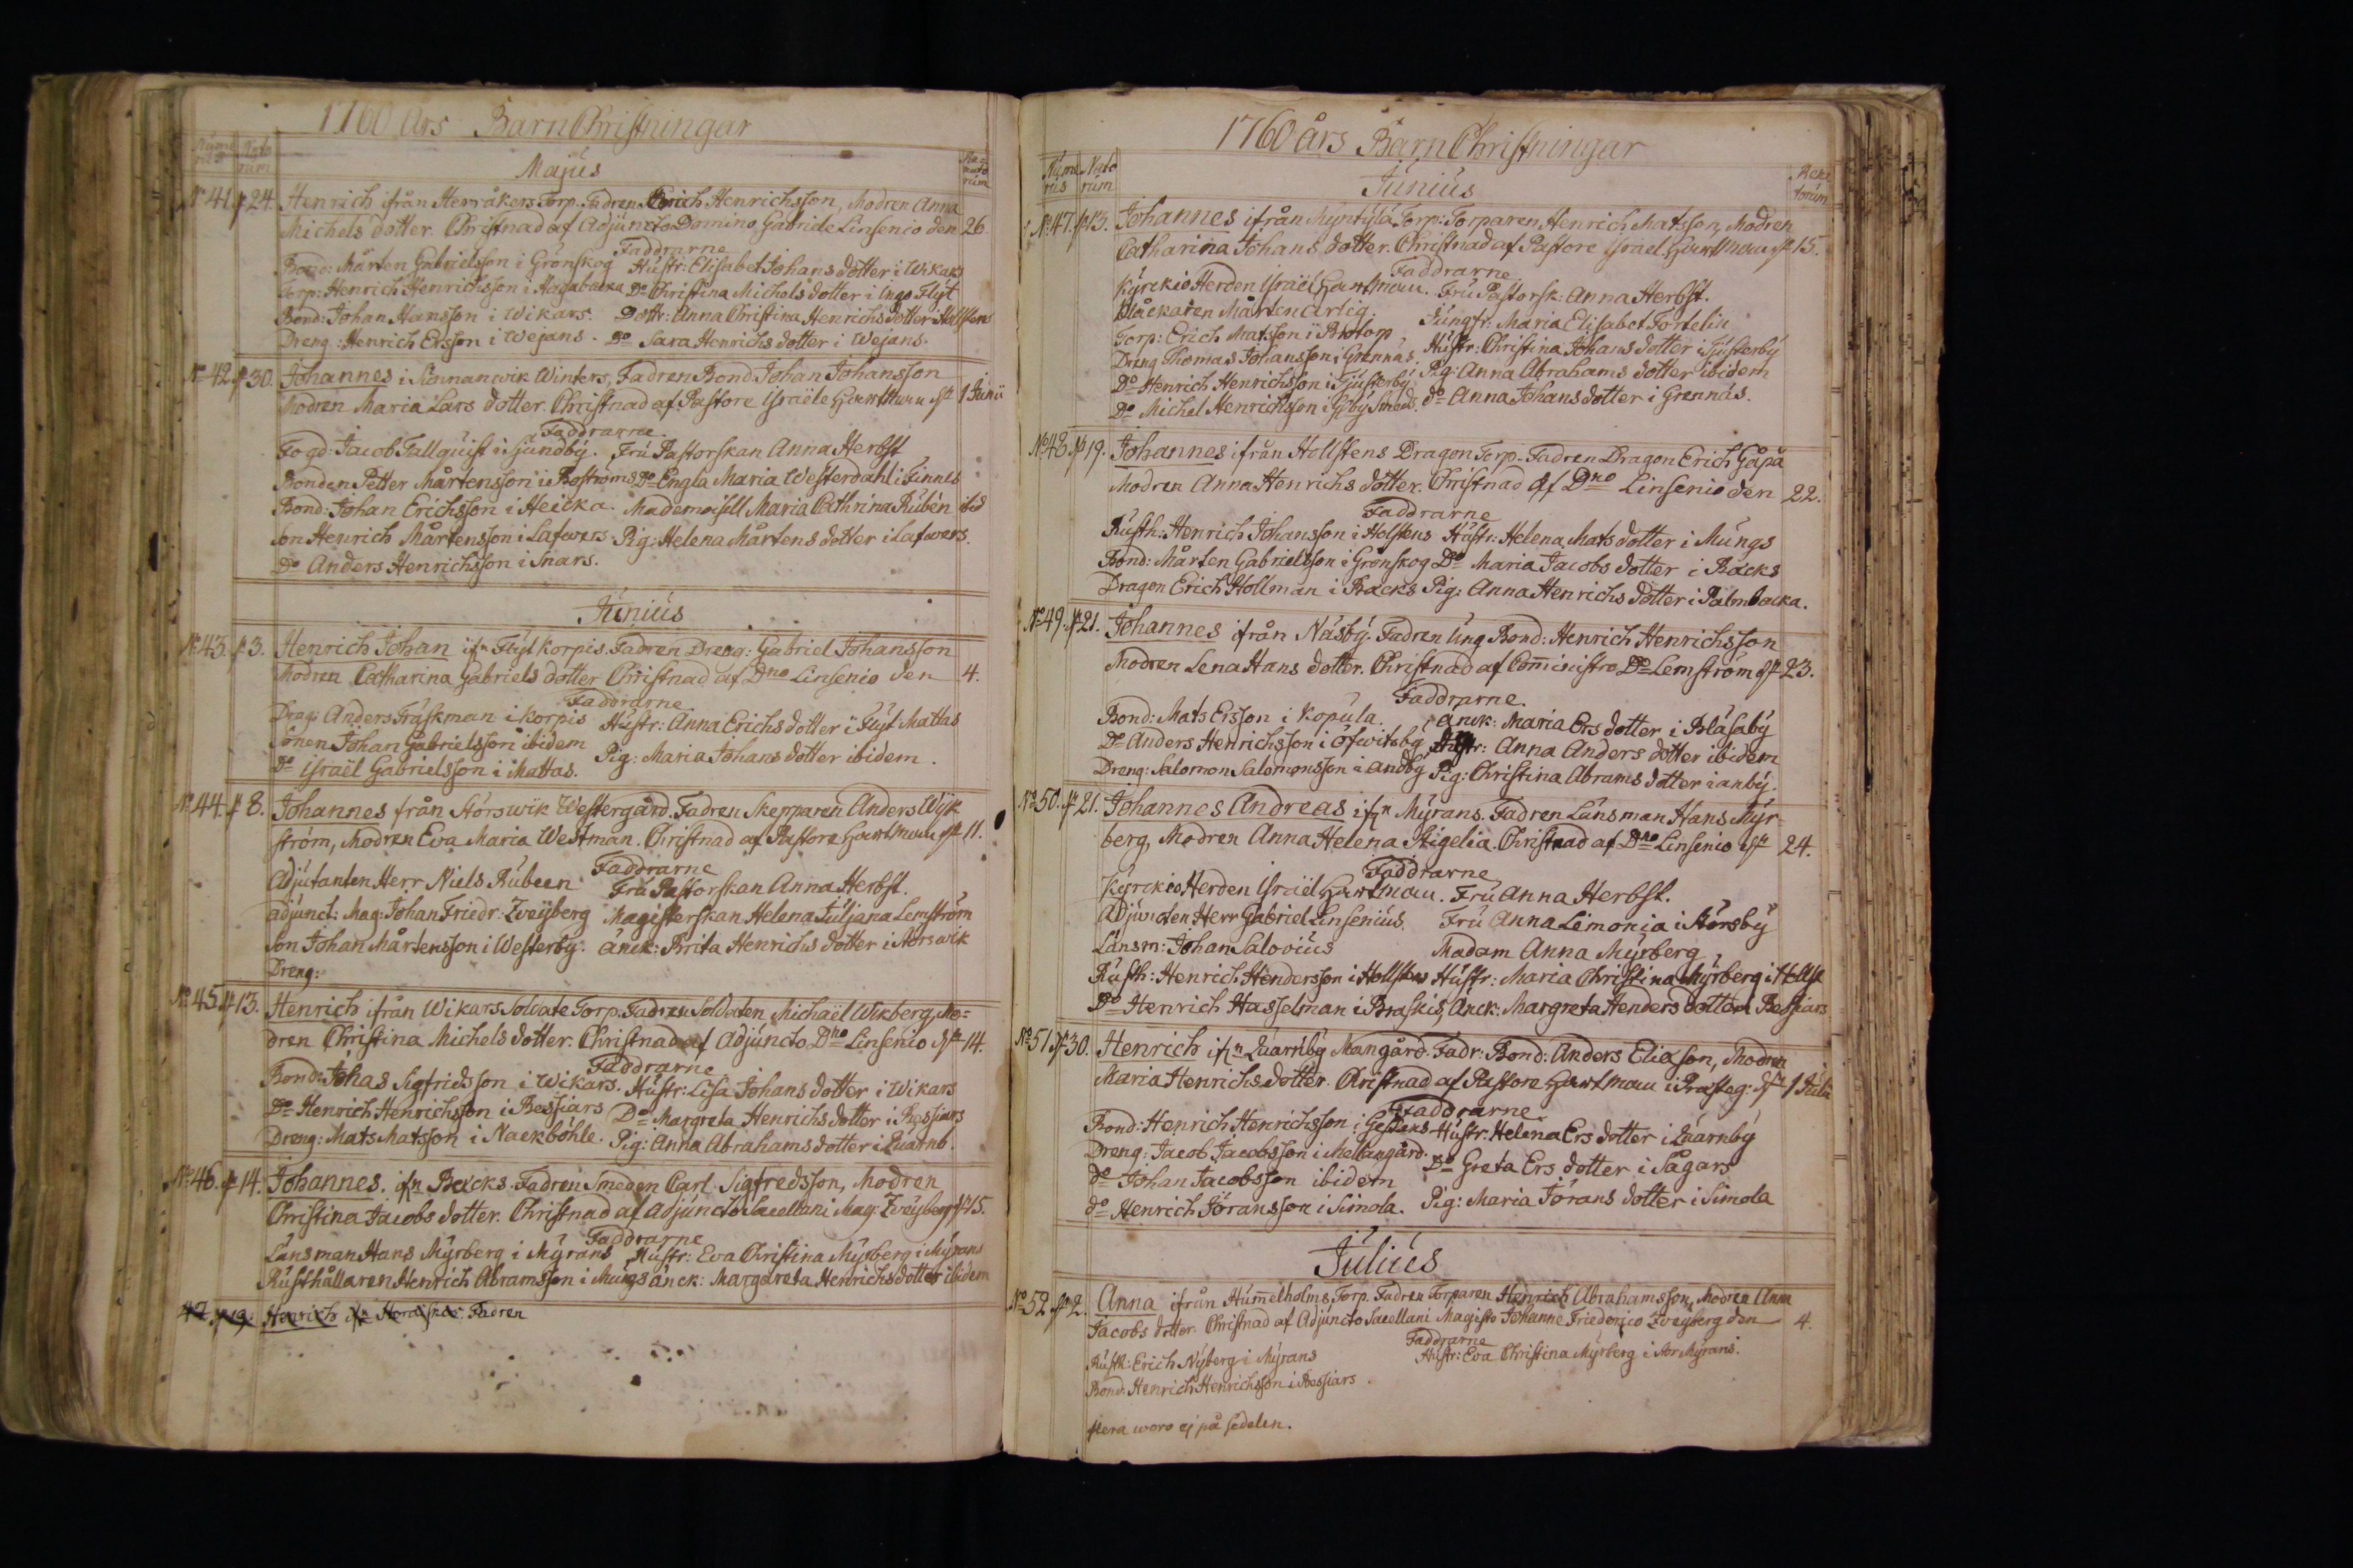 1760 års BarnChristningar
Majus
No 41. 24. Henrich ifrån Herråkers Torp. Fadren Erich Henrichsson, Modren Anna
Michels dotter. Christnad af Adjuncto Domino Gabriele Linsenio den 26
Faddrarne
Bond: Mårten Gabrielsson i Grönskog Hustr: Elisabet Johans dotter i Wikars
Torp: Henrich Henrichsson i Hagabacka Do Christina Michels dotter i Flyt
Bond: Johan Hansson i Wikars. Dottr: Anna Christina Henrichs dotter
Dreng: Henrich Ersson i Wejans. Do Sara Henrichs dotter i Wejans.
No 42. 30. Johannes i Winters, Fadren Bond. Johan Johansson
Modren Maria Lars dotter. Christnad af Pastore Israële Hartman 1 Junii
Faddrarne
Fogd: Jacob Fallquist i Sjundby. Fru Pastorskan Anna Herbst
Bonden Petter Mårtensson i Boströms Do Engla Maria Westerdahl i Finnes
Bond: Johan Erichsson i Heicka. Mademoisell Maria Cathrina Ruben ibid
Son Henrich Mårtensson i Lafwers. Pig: Helena Mårtens dotter i Lafwers.
Do Anders Henrichsson i Snars.
Junius
No 43. 3. Henrich Johan ifn Flyt Korpis. Fadren Dreng: Gabriel Johansson
Modren Catharina Gabriels dotter Christnad af Dno Linsenio den 4.
Faddrarne
Drag: Anders Träskman i Korpis Hustr: Anna Erichs dotter i Flyt Mattas
Sonen Johan Gabrielsson ibidem
Pig: Maria Johans dotter ibidem.
Do Israël Gabrielsson i Mattas.
No 44. 8. Johannes från Störswik Westergård. Fadren Skepparen Anders Wijk
ström, Modren Eva Maria Westman. Christnad af Pastore Hartman 11.
Faddrarne
Adjutanten Herr Niels Rubeen Fru Pastorskan Anna Herbst.
Adjunct: Mag: Johan Friedr: Zweyberg Magisterskan Helena Juljana Lemström
Son Johan Mårtensson i Westerby. änck: Brita Henrichs dotter i Störswik
Dreng:
No 45. 13. Henrich ifrån Wikars Soldate Torp. Fadren Soldaten Michaël Wikberg, Mo=
dren Christina Michels dotter. Christnad af Adjuncto Dno Linsenio 14.
Faddrarne
Bond: Johas Sigfridsson i Wikars. Hustr: Lisa Johans dotter i Wikars
Do Henrich Henrichsson i Bessiars Do Margreta Henrichs dotter i Bessiars
Dreng: Mats Matsson i Nackböhle. Pig: Anna Abrahams dotter i Quarnb.
No 46. 14. Johannes. ifn Bäcks. Fadren Smeden Carl Sigfredsson, Modren
Christina Jacobs dotter. Christnad af Adjuncto Sacellani Mag: Zweyberg 15.
Faddrarne
Länsman Hans Myrberg i Myrans Hustr: Eva Christina Myrberg i Myrans
Rusthållaren Henrich Abramsson i Mungs änck: Margareta Henrichs dotter ibidem
47. 19. Henrich ifn Fadren
1760 års BarnChristningar
Junius
No 47. 13. Johannes ifrån Myntylä Torp: Torparen, Henrich Matsson, Modren
Catharina Johans dotter. Christnad af Pastore Israel Hartman 15.
Faddrarne
Kyrckio Herden Israël Hartman. Fru Pastorsk: Anna Herbst.
Klåckaren Mårten Artig. Jungfr: Maria Elisabet Fortelin
Torp: Erich Matsson i Brotorp Hustr: Christina Johans dotter i Tjusterby
Dreng Thomas Johansson i Grennäs. Pig: Anna Abrahams dotter ibidem
Do Henrich Henrichsson i Tjusterby. do Anna Johans dotter i Grennäs.
Do Michel Henrichsson i Smeds.
No 48. 19. Johannes ifrån Hollstens Dragon Torp. Fadren Dragon Erich Gåpå
Modren Anna Henrichs dotter. Christnad af Dno Linsenio den 22.
Faddrarne
Rusth: Henrich Johansson i Holstens Hustr: Helena Mats dotter i Mungs
Bond: Mårten Gabrielsson i Grönskog Do Maria Jacobs dotter i Bäcks
Dragon Erich Hollman i Bäcks Pig: Anna Henrichs dotter i Palmbacka.
No 49. 21. Johannes ifrån Näsby. Fadren Ung Bond: Henrich Henrichsson
Modren Lena Hans dotter. Christnad af Comministro Do Lemström 23.
Faddrarne.
Bond: Mats Ersson i Kopula. änck: Maria Ers dotter i Blåsaby
Do Anders Henrichsson i Öfwitsby Hustr: Anna Anders dotter ibidem
Dreng: Salomon Salomonsson i Andby Pig: Christina Abrams dotter i anby.
No 50. 21. Johannes Andreas ifn Myrans. Fadren Länsman Hans Myr-
berg, Modren Anna Helena Stigelia. Christnad af Dno Linsenio 24.
Faddrarne
Kyrckio Herden Israël Hartman. Fru Anna Herbst.
Adjuncten Herr Gabriel Linsenius. Fru Anna Limonia i Störsby
Länsm: Johan Salovius Madam Anna Myrberg
Rusth: Henrich Hendersson i Hollstens Hustr: Maria Christina Myrberg i Hollst
Do Henrich Hasselman i Braskis, Änck: Margreta Henders dotter Bessiars
No 51. 30. Henrich ifn Quarnby Mangård. Fadr: Bond: Anders Eliason, Modren
Maria Henrichs dotter. Christnad af Pastore Hartman i Prästeg: 1 Julii
Faddrarne
Bond: Henrich Henrichsson i Hustr: Helena Ers dotter i Quarnby
Dreng: Jacob Jacobsson i Mellangård. Do Greta Ers dotter i Sågars
do Johan Jacobsson ibidem
do Henrich Jöransson i Simola. Pig: Maria Jörans dotter i Simola
Julius
No 52. 2. Anna ifrån Hummelholms Torp. Fadren Torparen Henrich Abrahamsson, Modren Anna
Jacobs dotter. Christnad af Adjuncto Sacellani Magistro Johanne Friederico Zweyberg den 4.
Faddrarne
Rusth: Erich Nyberg i Myrans Hustr: Eva Christina Myrberg i Myrans.
Bond: Henrich Henrichsson i Bessiars.
flera woro ej på sedelen.